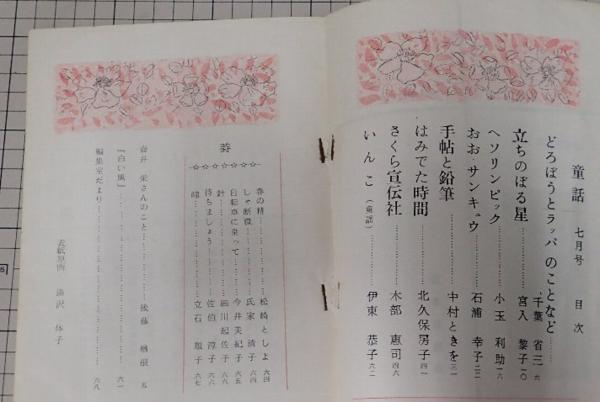 童話 七月号 目次
どろぼうとラッパのことなど 千葉省三 六
立ちのぼる星 宮入黎子 一〇
ヘソリンピック 小玉利助 一六
おお・サンキュウ 石浦幸子 二二
手帖と鉛筆 中村ときを 三一
はみでた時間 北久保房子 四一
さくら宣伝社 木部恵司 四六
いんこ（童話） 伊東恭子 六二
春の精 松崎としよ 六四
しゃ断機 氏家清子 六四
自転車に乗って 今井美紀子 六五
針 細川起佐子 六六
待ちましょう 佐伯淳子 六六
立石 子 六七
壺井栄さんのこと 後藤楢根 五
『白い風』 六一
編集室だより 六八
表紙原画 湯沢 子